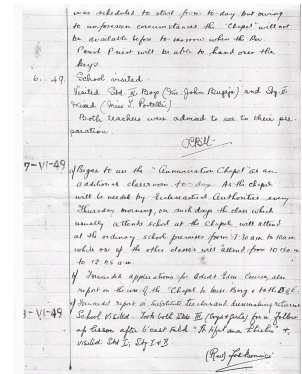 was scheduled to start from to-day but owing
to unforeseen circumstances the "Chapel" will not
be available before to-morrow when the Rev.
Parish Priest will be able to hand over the
keys.
6. 49. School visited.
Visited Std. III Boys (Mr. John Bugeja) and Stg. II
Mixed (Miss J. Portelli)
Both teachers were advised to see to their pre-
paration.
7-VI-49 Began to use the "Annunciation Chapel" as an
additional classroom to-day. As the chapel
will be needed by Ecclesiastical Authorities every
Thursday morning, on such days the class which
usually attends school at the Chapel will attend
at the ordinary school premises from 7.30 am to 10 am
while one of the other classes will attend from 10.15 am
to 12.45 a.m.
Forwarded applications for Adult Educ. Courses, also
report on the use of the "Chapel to
Forwarded report a Substitute Teacher and dressmaking returns
8-VI-49 School Visited. Took both Stds III (boys & girls) for a follow
up lesson after
visited Std I, Stg I & II.
(Rev)